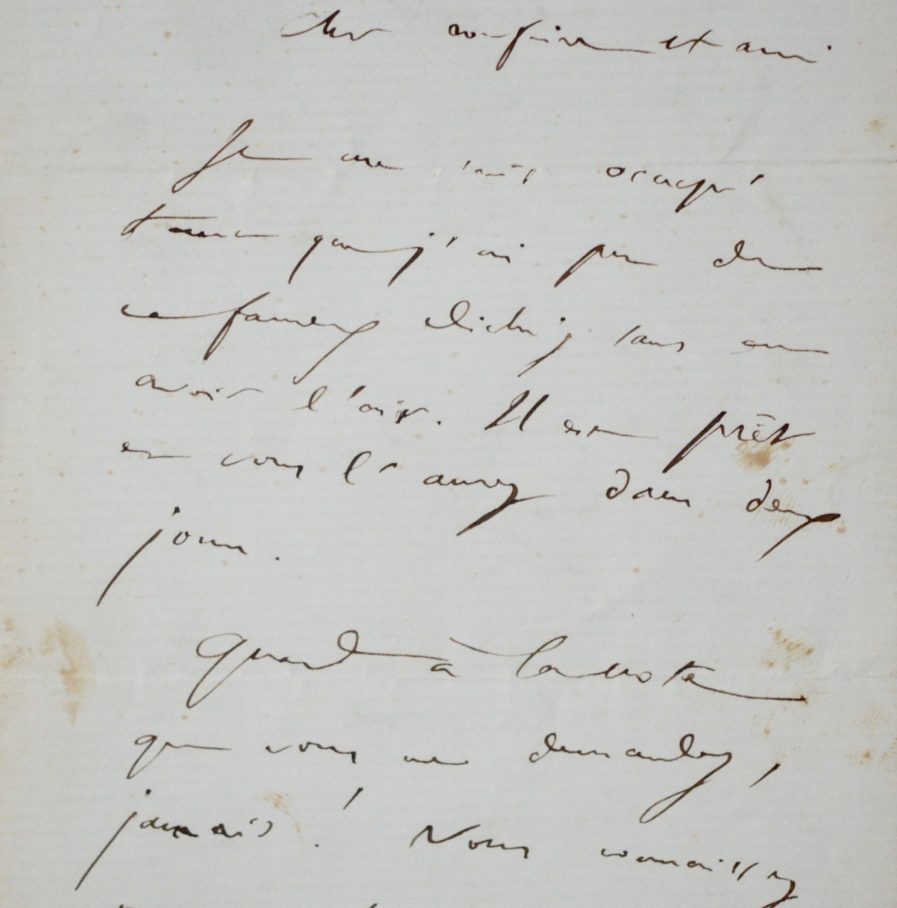 Cher confrère et ami
Je me suis occupé
tant que j'ai pu de
ce fameux cliché, sans en
avoir l'air. Il est prêt
et vous l'aurez dans deux
jours.
Quand à la note
que vous me demandez,
jamais! Vous connaissez